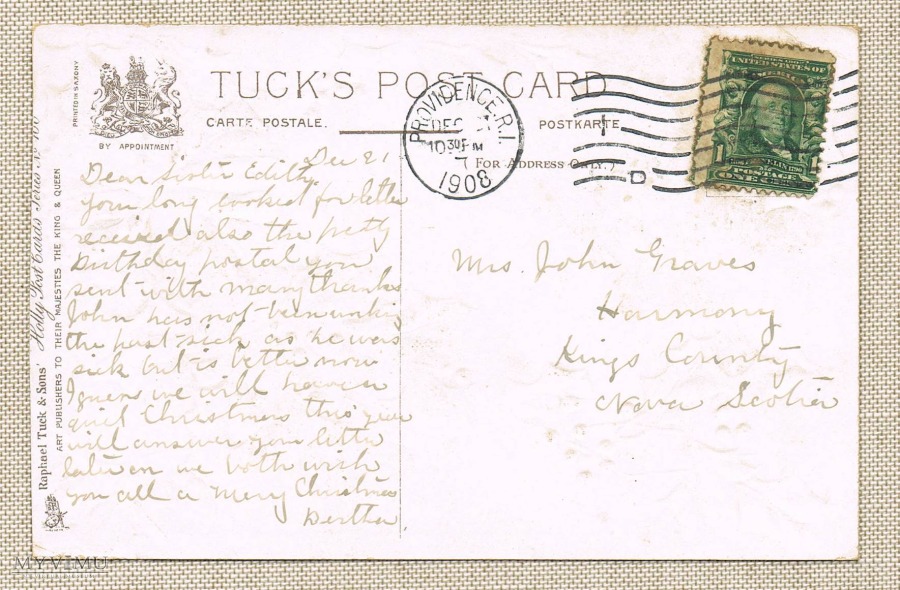 PRINTED IN SAXONY
BY APPOINTMENT
TUCK'S POST CARD
CARTE POSTALE.
POSTKARTE
FOR ADDRESS ONLY.
PROVIDENCE, R.I.
DEC
1030 PM
1908
D
UNITED STATES OF
AMERICA
FRANKLIN
POSTAGE
ONE
Raphael Tuck & Sons' Holly Post Cards Series
ART PUBLISHERS TO THEIR MAJESTIES THE KING & QUEEN
Dec 21
Dear Sister Edith,
your long looked for letter
received also the pretty
Birthday postal you
sent with many thanks
John has not been
the past as he was
sick but is better now
I guess we will have a
quiet Christmas this year
will answer your letter
later on we both wish
you all a Merry Christmas
Bertha
Mrs. John Graves
Harmony
Kings County
Nova Scotia
MYVIMU